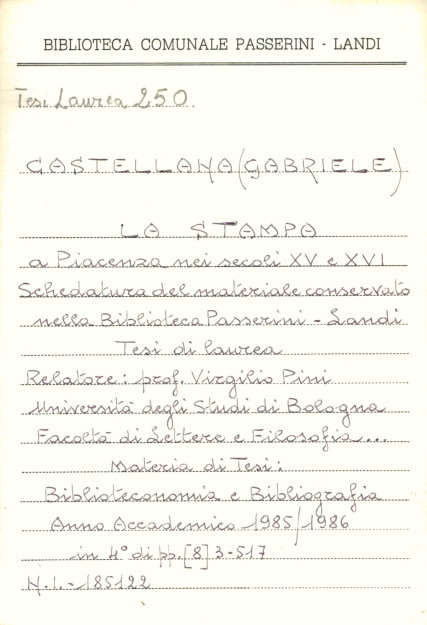 BIBLIOTECA COMUNALE PASSERINI - LANDI
Tesi Laurea 250.
CASTELLANA (GABRIELE)
LA STAMPA
a Piacenza nei secoli XV e XVI
Schedatura del materiale conservato
nella Biblioteca Passerini - Landi
Tesi di laurea
Relatore: prof. Virgilio Pini
Università degli Studi di Bologna
Facoltà di Lettere e Filosofia...
Materia di Tesi:
Biblioteconomia e Bibliografia
Anno Accademico 1985/1986
in 4° di pp. [8] 3-517
N.I. - 185122